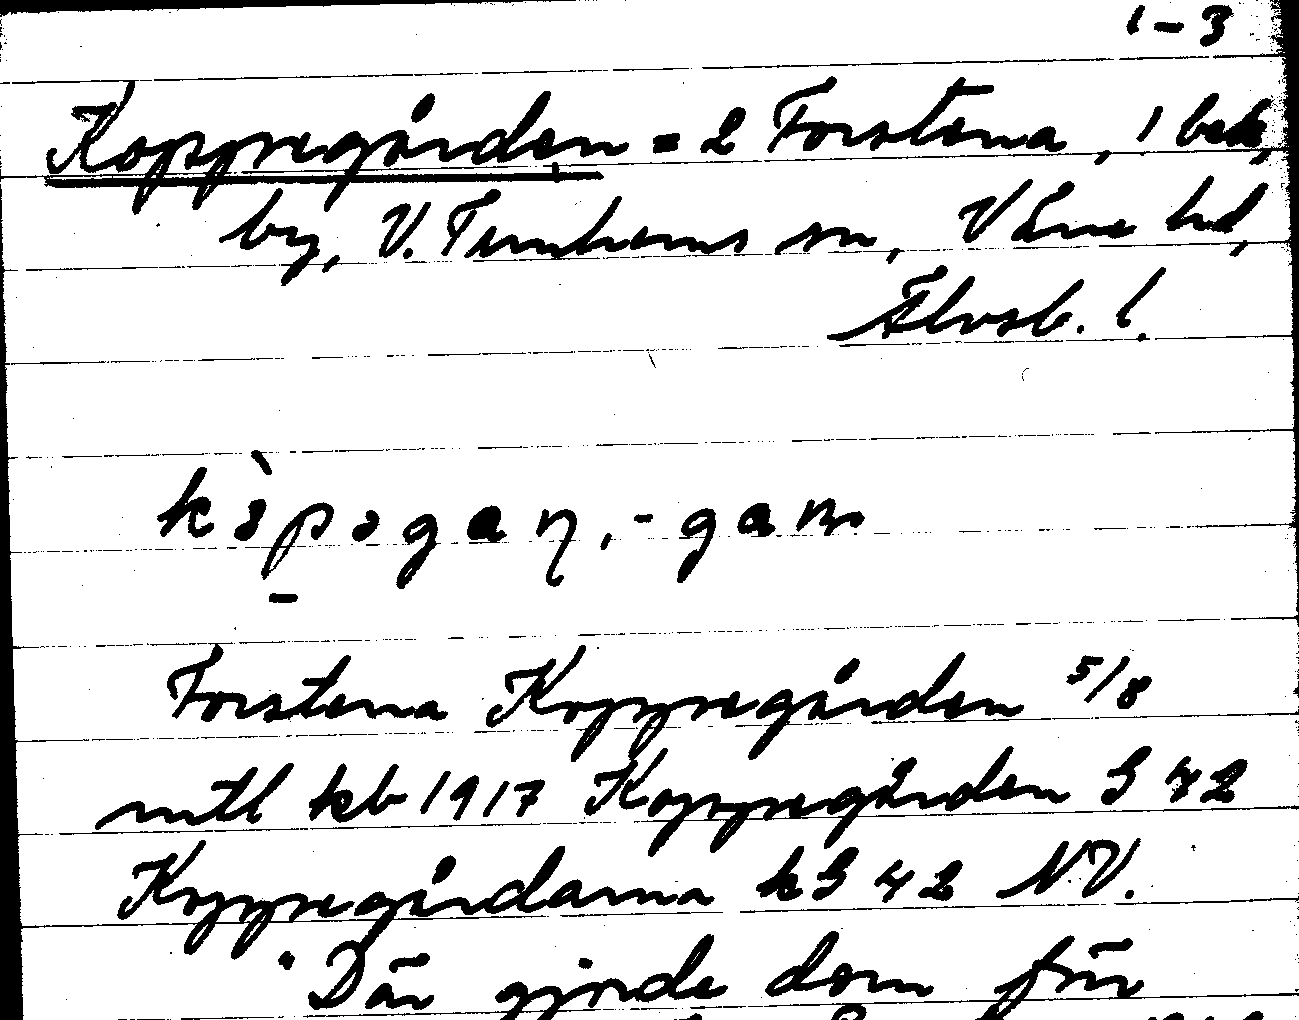 1-3
Koppregården = 2 Forstena, 1 beb,
by, V. Tunhems sn, Väne hd,
Älvsb. l.
kɔ̀pəgaɳ, -gaɳ
Forstena Koppregården 5/8
mtl kb 1917 Koppregården G 42
Koppregårdarna kG 42 NV.
"Där gjorde dom för